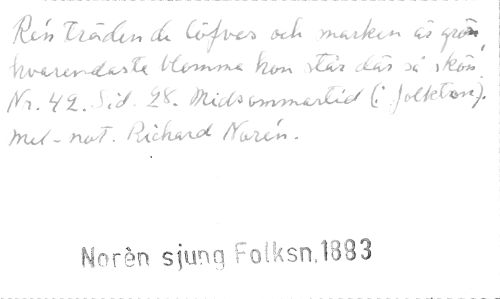 Ren träden de löfvas och marken är grön
hvarendaste blomma hon står där så skön.
Nr. 42. Sid. 28. Midsommartid (i folkton).
mel-not. Richard Norén.
Norèn sjung Folksn. 1883